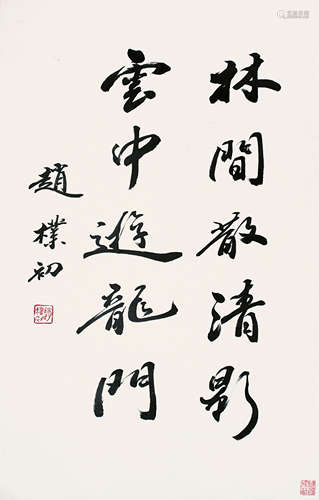 林間散清影
雲中遊龍門
趙樸初